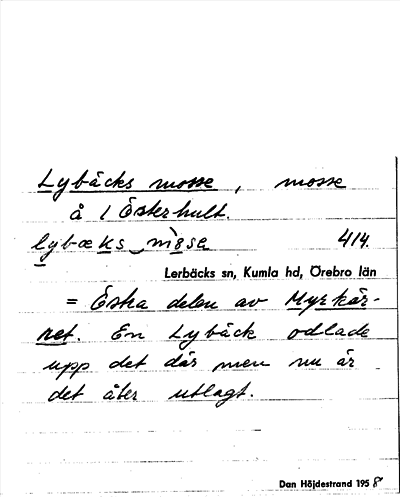 Lybäcks mosse, mosse
å 1 Österhult.
lybæks mòse 414.
Lerbäcks sn, Kumla hd, Örebro län
= Östra delen av Myrkär-
ret. En Lybäck odlade
upp det där men nu är
det åter utlagt.
Dan Höjdestrand 1958